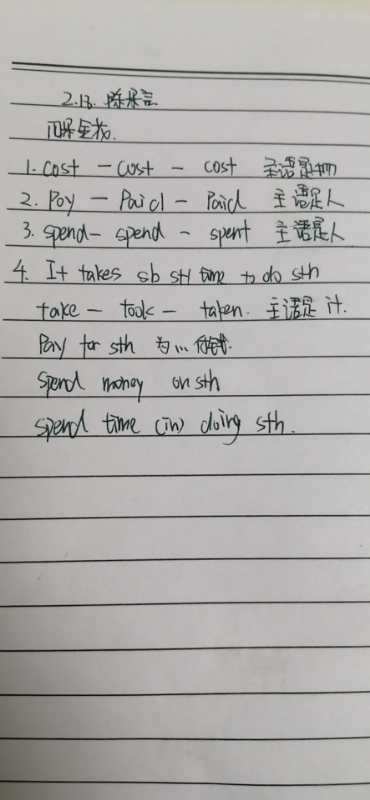 2.13. 陈
1. cost - cost - cost 主语是物
2. Pay - Paid - Paid 主语是人
3. spend - spend - spent 主语是人
4. It takes sb sth time to do sth
take - took - taken. 主语是 it.
Pay for sth 为... 付钱.
Spend money on sth
spend time (in) doing sth.